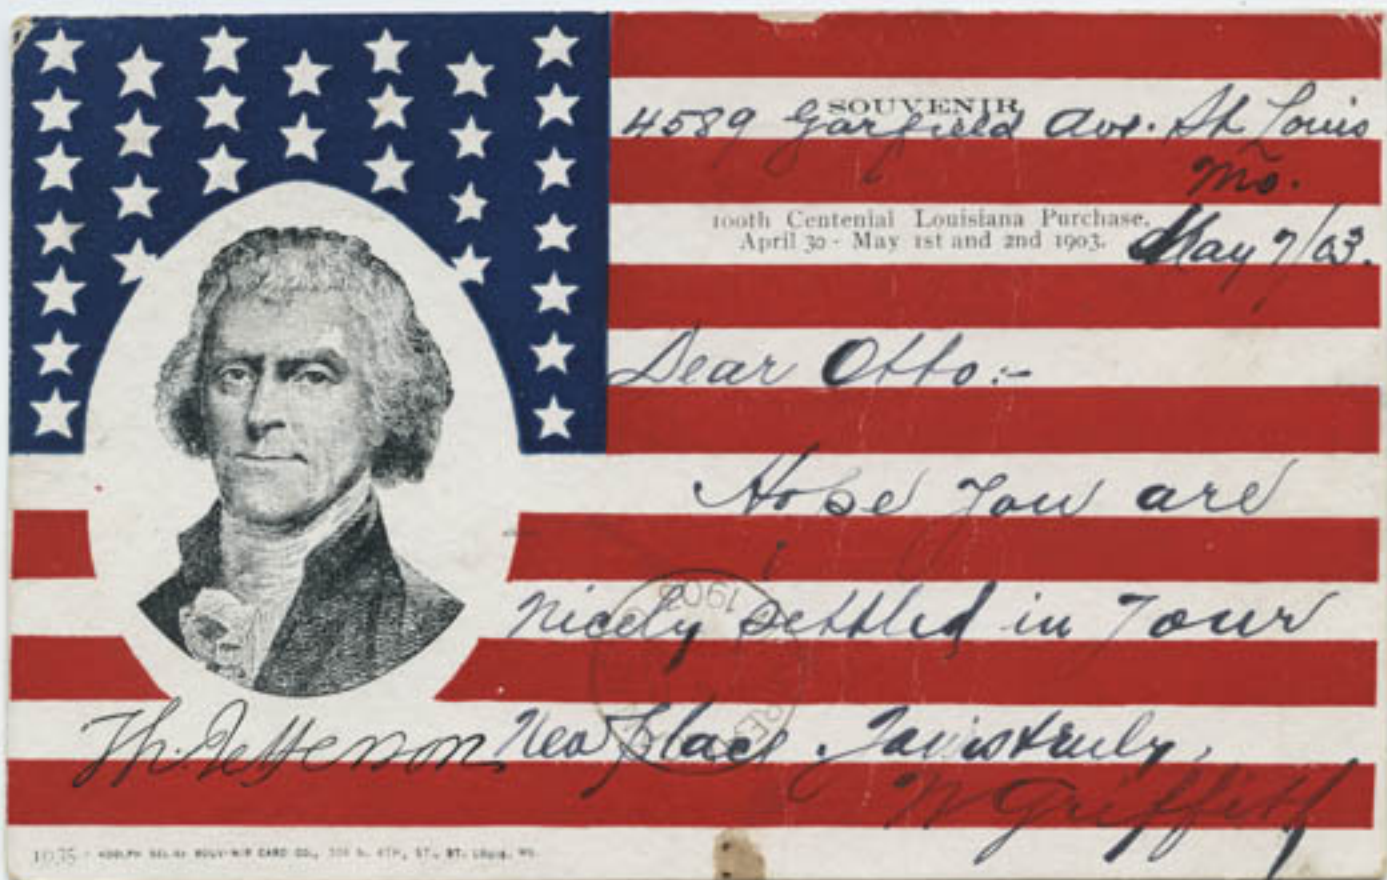 SOUVENIR
4589 Garfield Ave. St Louis
Mo.
100th Centenial Louisiana Purchase.
April 30 - May 1st and 2nd 1903.
May 7/03.
Dear Otto:-
Hope you are
nicely settled in your
new place. Yours truly,
W Griffith
Th. Jefferson
1903
1035 ADOLPH SOUVENIR CARD CO., ST., ST. LOUIS, MO.